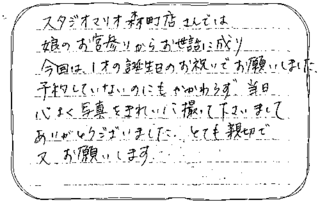 スタジオマリオ森町店さんでは
娘のお宮参りからお世話に成り
今回は、1才の誕生日のお祝いでお願いしました。
予約していないのにもかかわらず、当日
心よく写真をきれいに撮って下さいまして
ありがとうございました。とても親切で
又、お願いします